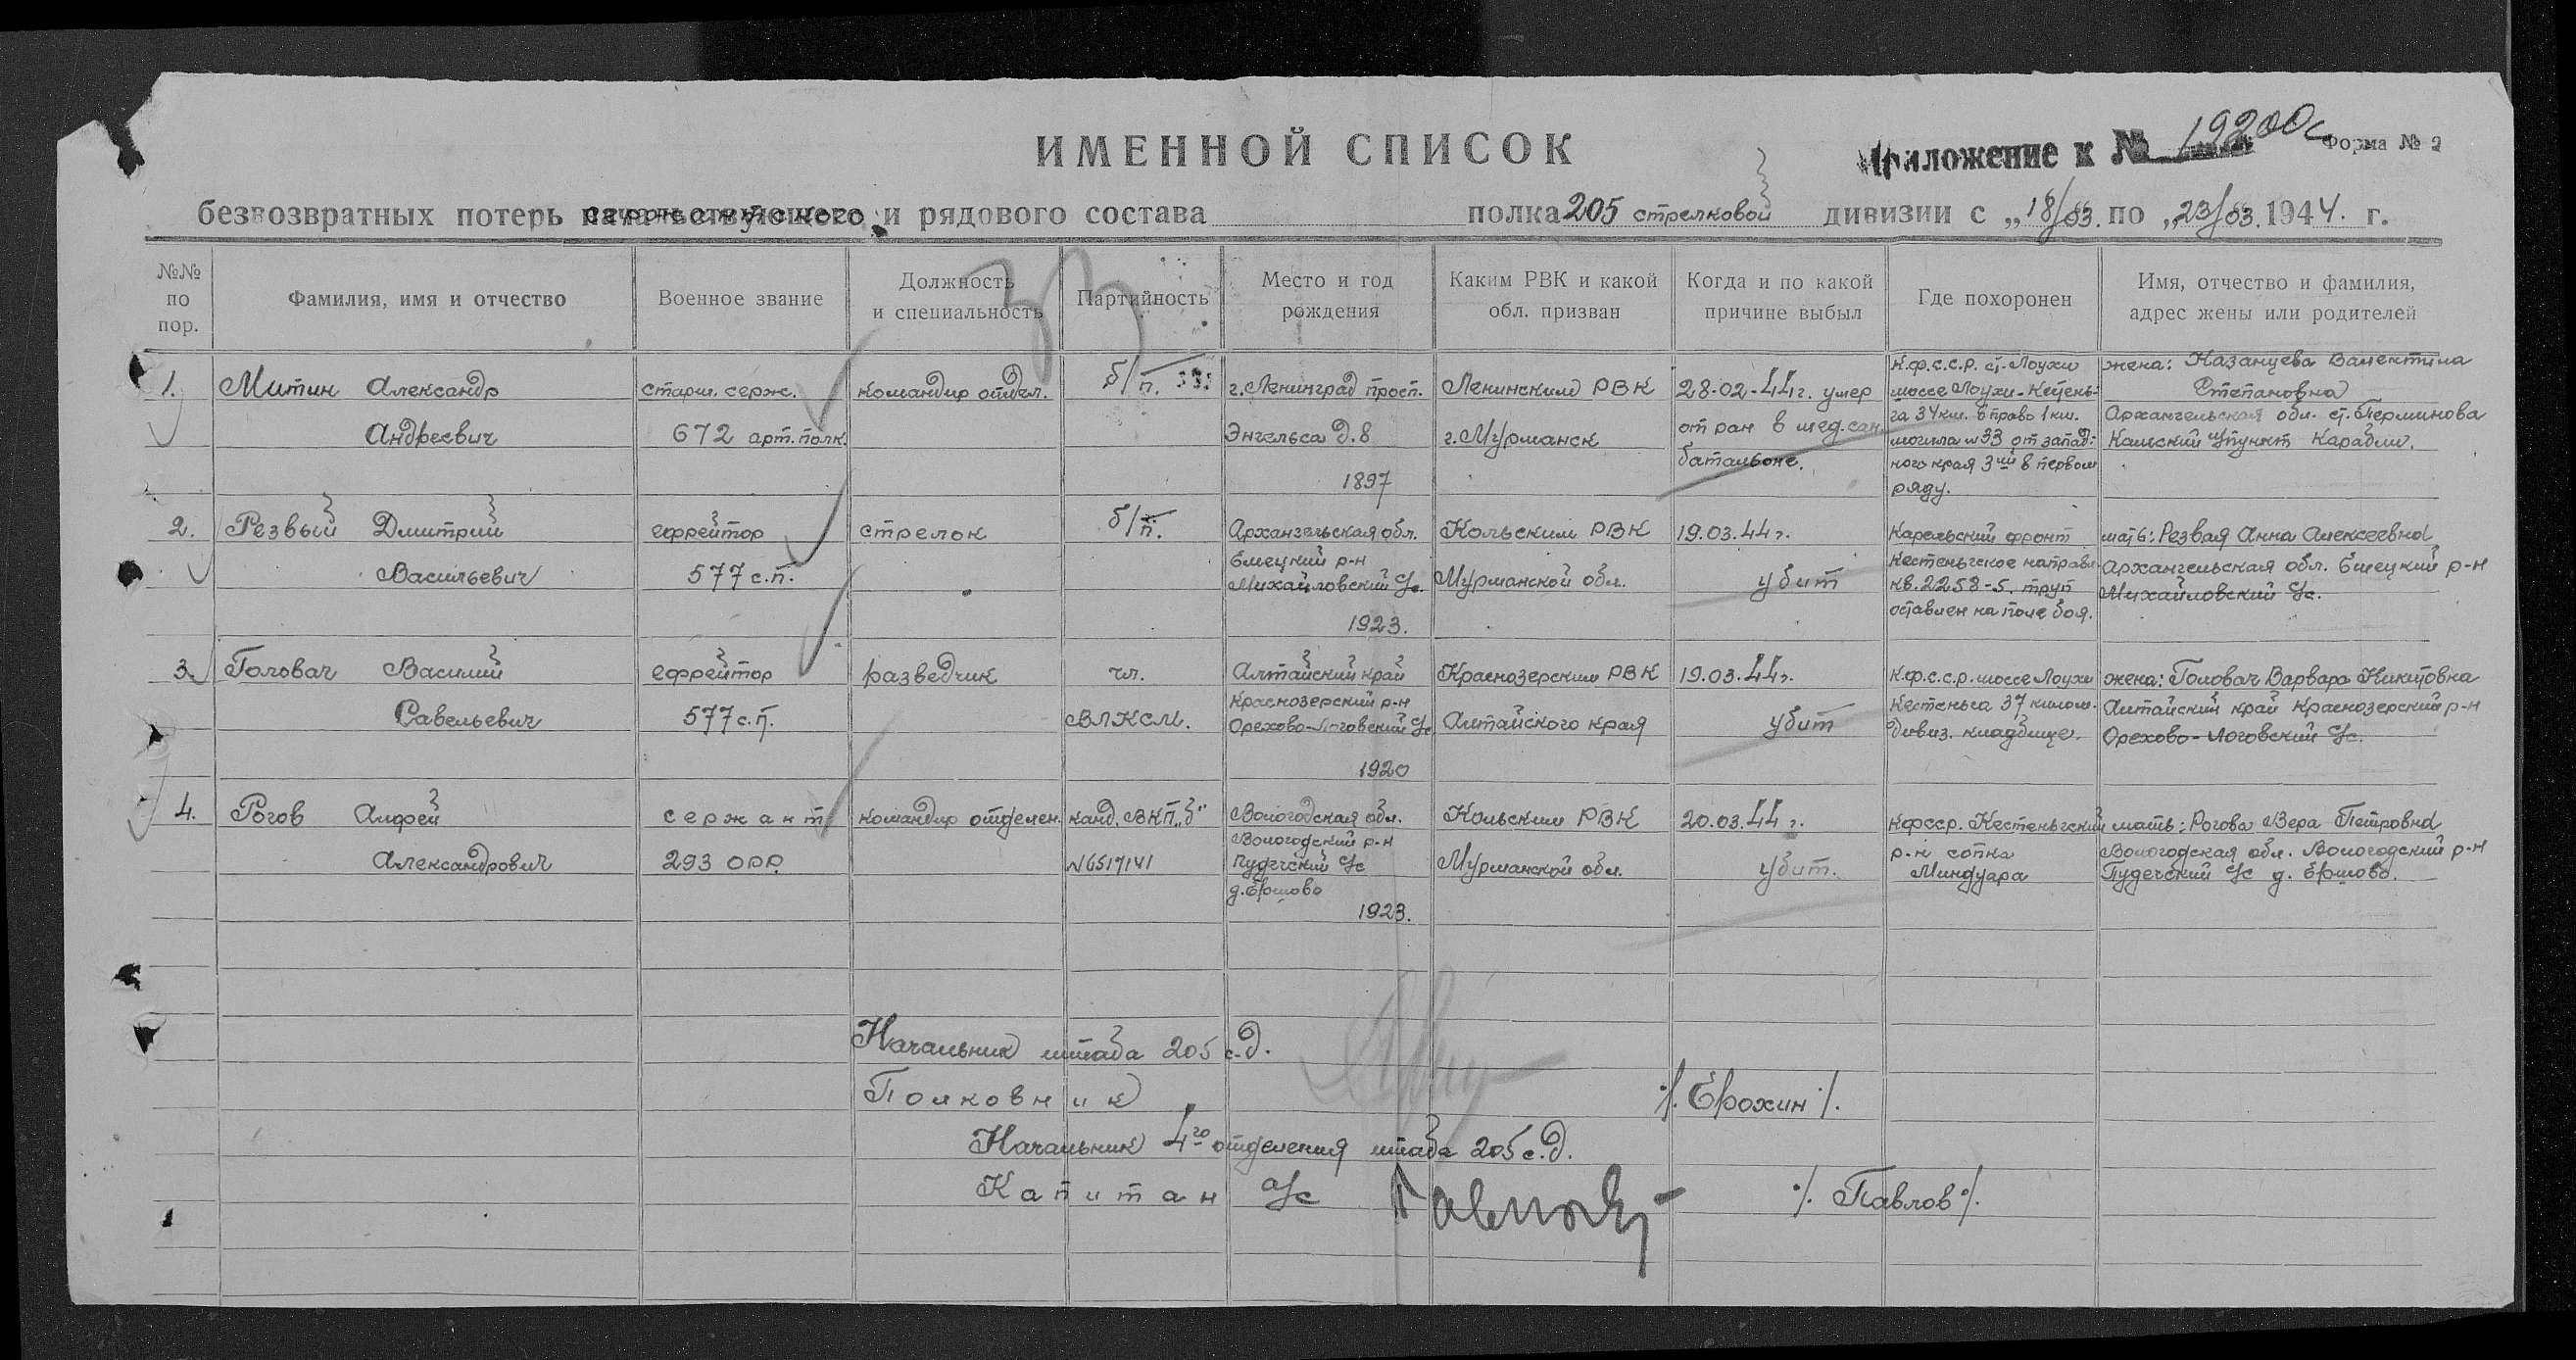 ИМЕННОЙ СПИСОК
Приложение к № 19200с
Форма № 2
безвозвратных потерь и рядового состава полка 205 стрелковой дивизии с „18/03. по „23/03. 1944. г.
№№ по пор.
Фамилия, имя и отчество
Военное звание
Должность и специальность
Партийность
Место и год рождения
Каким РВК и какой обл. призван
Когда и по какой причине выбыл
Где похоронен
Имя, отчество и фамилия, адрес жены или родителей
1.
Митин Александр
Андреевич
старш. серж.
672 арт. полк.
командир отдел.
б/п.
г. Ленинград просп.
Энгельса д. 8
1897
Ленинским РВК
г. Мурманск
28-02-44 г. умер
от ран в мед. сан.
батальоне.
К.ф.с.с.р. ст. Лоухи
шоссе Лоухи-Кестень-
га 34 км. вправо 1 км.
могила №33 от запад-
ного края 3ий в первом
ряду.
жена: Казанцева Валентина
Степановна
Архангельская обл. ст. Перминова
2.
Резвый Дмитрий
Васильевич
ефрейтор
577 с.п.
стрелок
б/п.
Архангельская обл.
Емецкий р-н
Михайловский с/с.
1923.
Кольским РВК
Мурманской обл.
19.03.44 г.
убит
Карельский фронт
Кестеньгское направл.
кв. 2258-5. труп
оставлен на поле боя.
мать: Резвая Анна Алексеевна
Архангельская обл. Емецкий р-н
Михайловский с/с.
3.
Головач Василий
Савельевич
ефрейтор
577 с.п.
разведчик
чл.
ВЛКСМ.
Алтайский край
Краснозерский р-н
Орехово-Логовский с/с
1920
Краснозерским РВК
Алтайского края
19.03.44 г.
убит
К.ф.с.с.р. шоссе Лоухи
Кестеньга 37 килом.
дивиз. кладбище.
жена: Головач Варвара Никитовна
Алтайский край Краснозерский р-н
Орехово-Логовский с/с.
4.
Рогов Алфей
Александрович
сержант
293 орр.
командир отделен.
канд. ВКП„б"
№6517141
Вологодская обл.
Вологодский р-н
Пудегский с/с
д. Ершово
1923.
Кольским РВК
Мурманской обл.
20.03.44 г.
убит.
Кфсср. Кестеньгский
р-н сопка
Миндуара
мать: Рогова Вера Петровна
Вологодская обл. Вологодский р-н
Пудегский с/с д. Ершово.
Начальник штаба 205 с.д.
Полковник /. Ерохин /.
Начальник 4го отделения штаба 205 с.д.
Капитан а/с /. Павлов /.